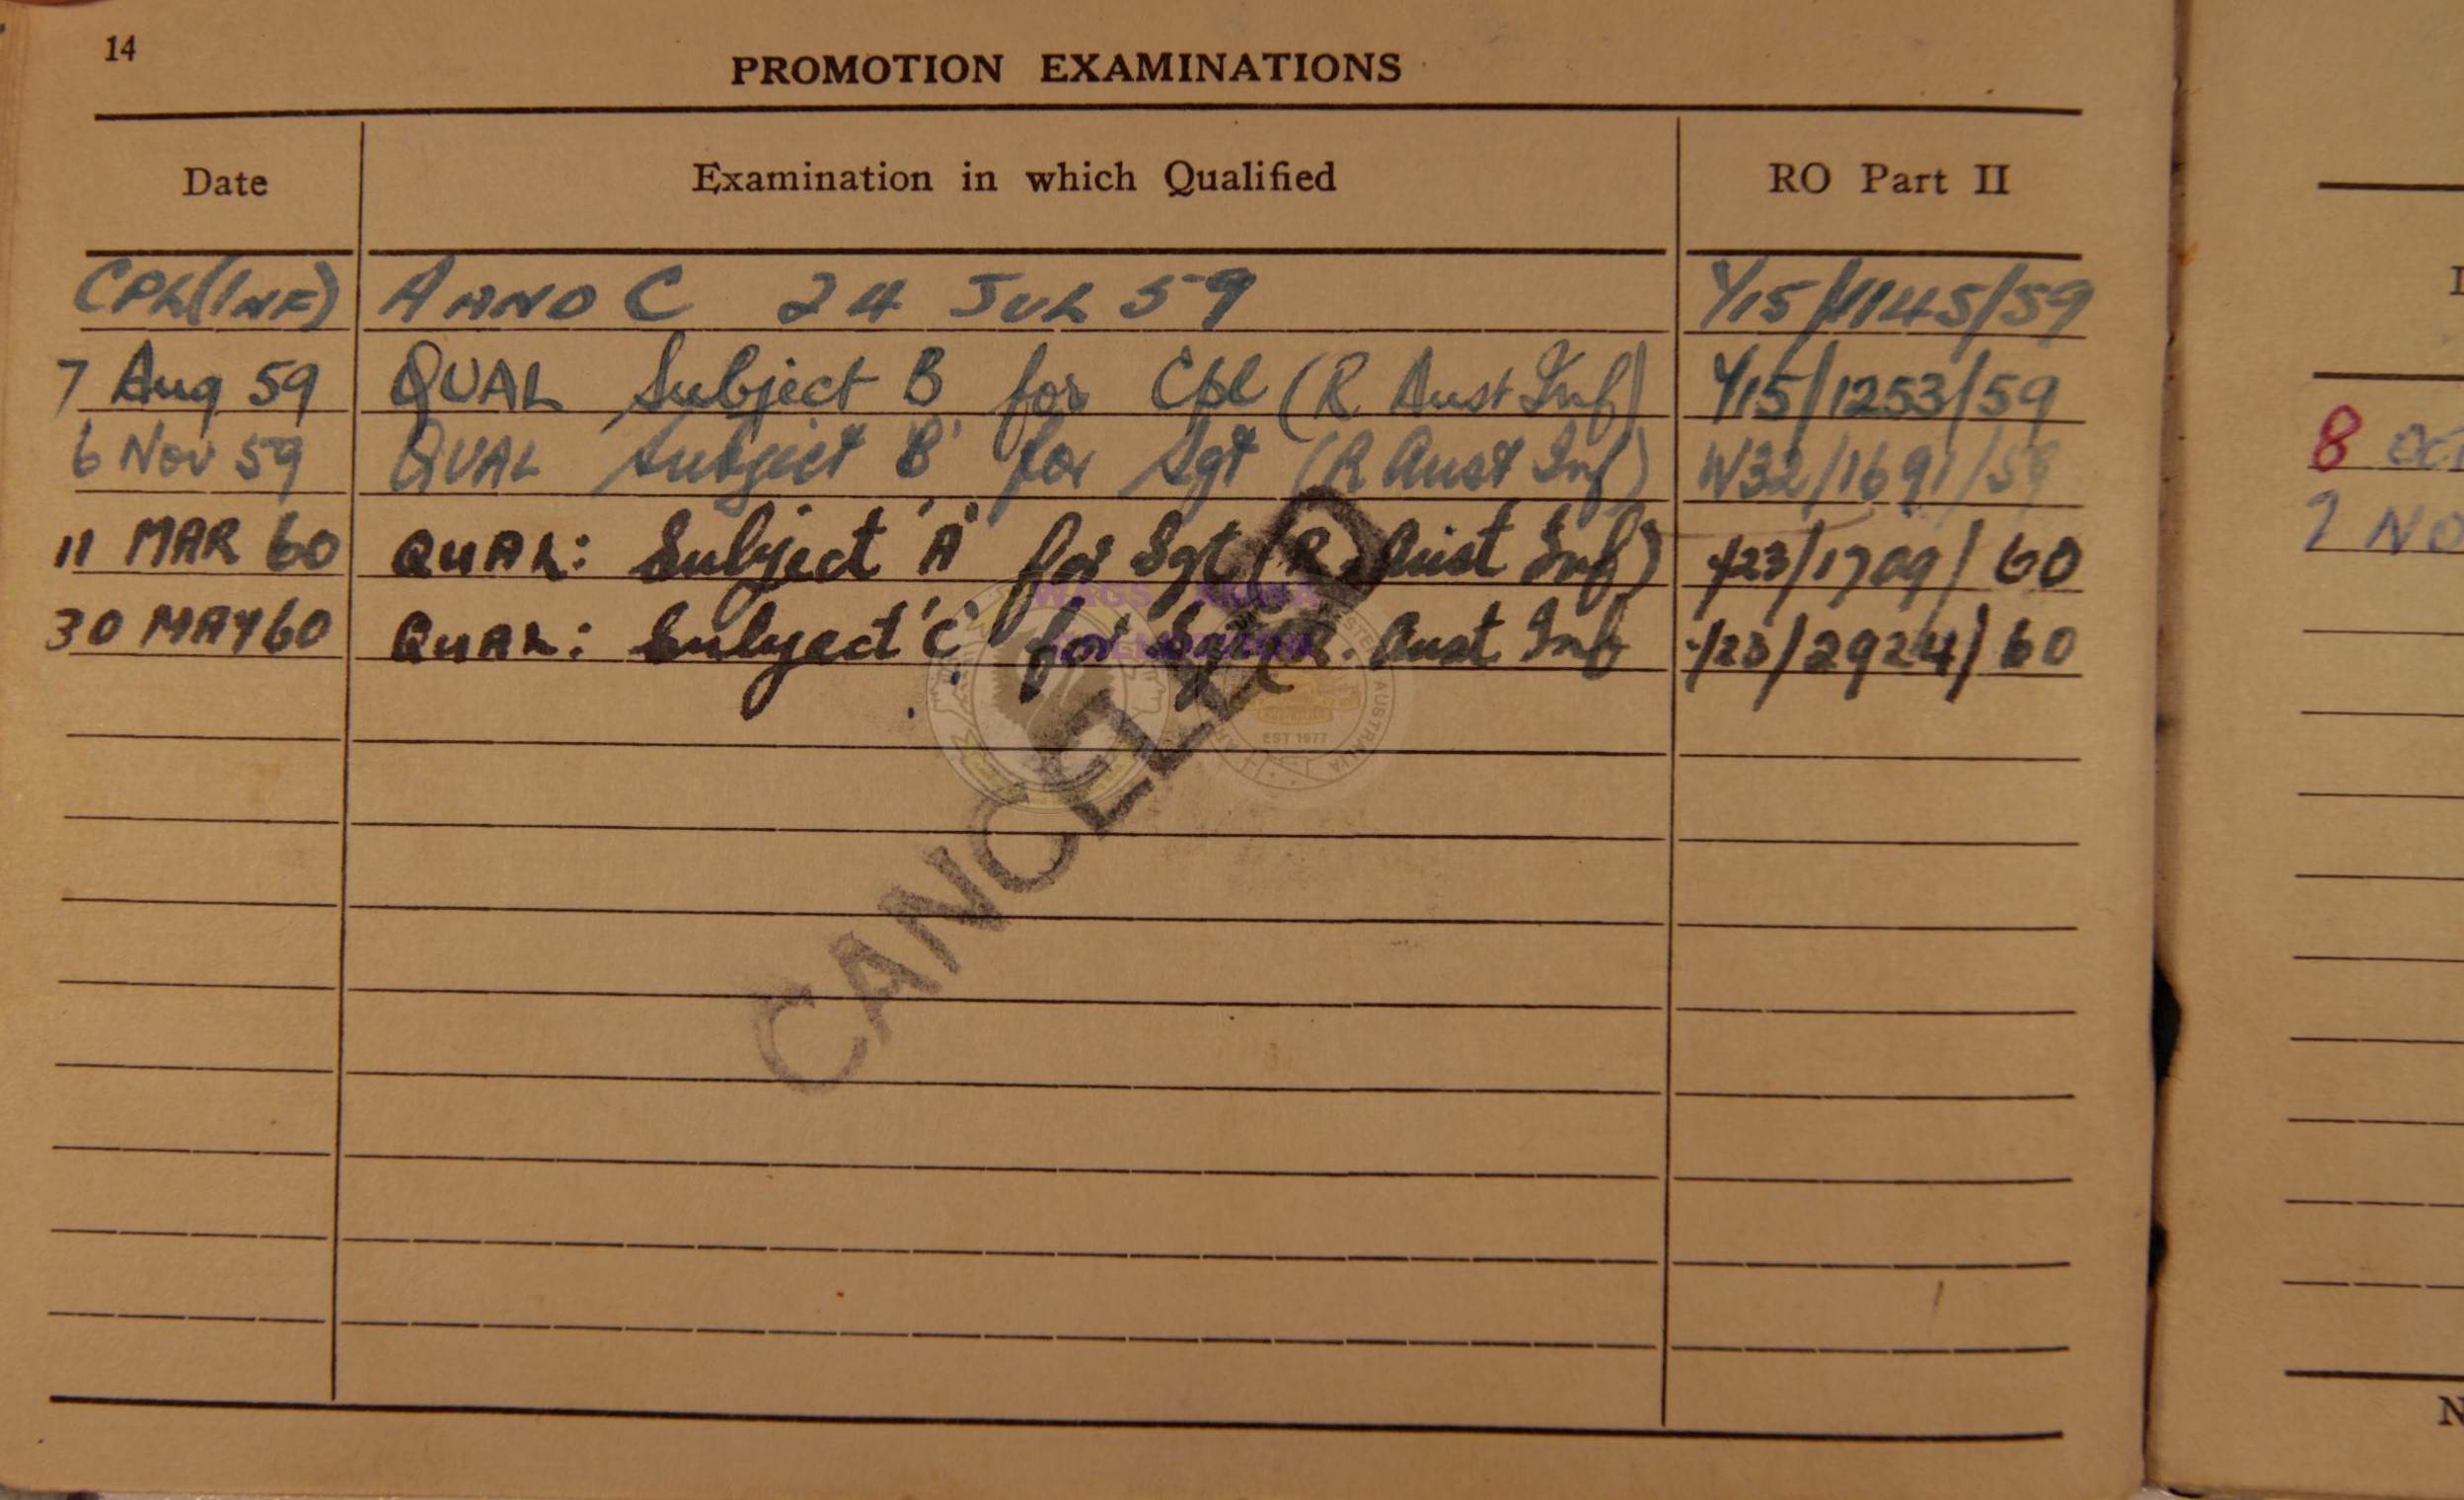 14
PROMOTION EXAMINATIONS
Date Examination in which Qualified RO Part II
CPL(INF) A AND C 24 JUL 59 Y15/1145/59
7 Aug 59 QUAL Subject B for Cpl (R Aust Inf) Y15/1253/59
6 Nov 59 QUAL Subject 'B' for Sgt (R Aust Inf) W32/1691/59
11 MAR 60 QUAL: Subject 'A' for Sgt (R. Aust Inf) /23/1709/60
30 MAY 60 QUAL: Subject 'C' for Sgt (R. Aust Inf /23/2924/60
CANCELLED
EST 1977
AUSTRALIA
8 OCT
2 NO